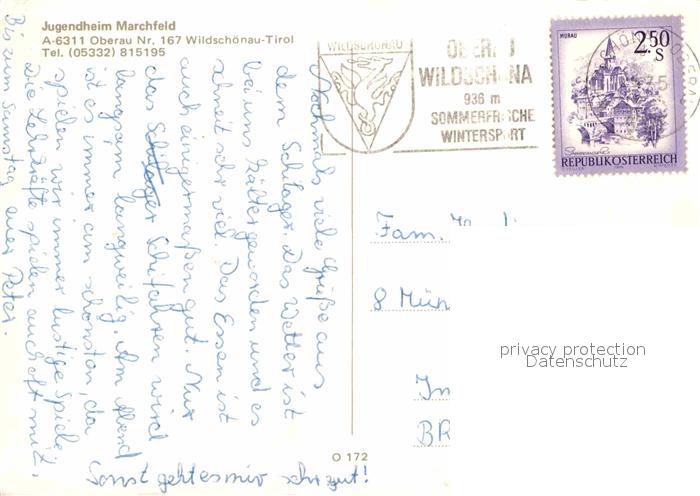 Jugendheim Marchfeld
A-6311 Oberau Nr. 167 Wildschönau-Tirol
Tel. (05332) 815195
WILDSCHÖNAU
OBERAU
WILDSCHÖNAU
936 m
SOMMERFRISCHE
WINTERSPORT
MURAU
2.50
S
REPUBLIK ÖSTERREICH
Nochmals viele Grüße aus
dem Schilager. Das Wetter ist
bei uns kälter geworden und es
schneit sehr viel. Das Essen ist
auch einigermaßen gut. Nur
das Schilager Schifahren wird
langsam langweilig. Am Abend
ist es immer am schönsten, da
spielen wir immer lustige Spiele.
Die Lehrkräfte spielen auch oft mit.
Bis zum Samstag euer Peter.
Sonst geht es mir sehr gut!
Fam.
8 Mün
In
BR
privacy protection
Datenschutz
O 172